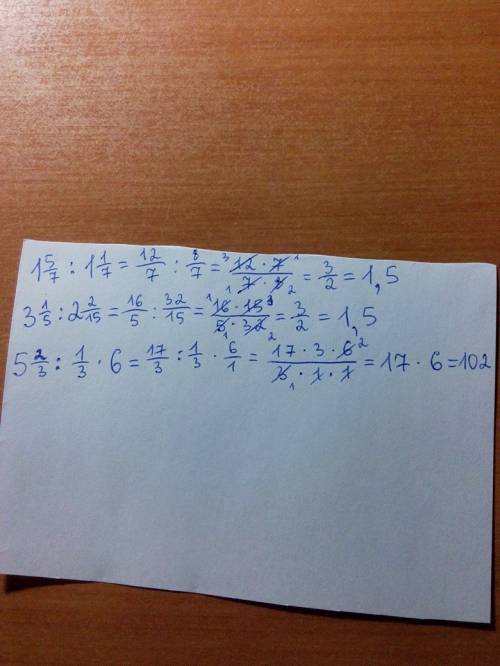 1 5/7 : 1 1/7 = 12/7 : 8/7 = (12 · 7)/(7 · 8) = 3/2 = 1,5
3 1/5 : 2 2/15 = 16/5 : 32/15 = (16 · 15)/(5 · 32) = 3/2 = 1,5
5 2/3 : 1/3 · 6 = 17/3 : 1/3 · 6/1 = (17 · 3 · 6)/(3 · 1 · 1) = 17 · 6 = 102